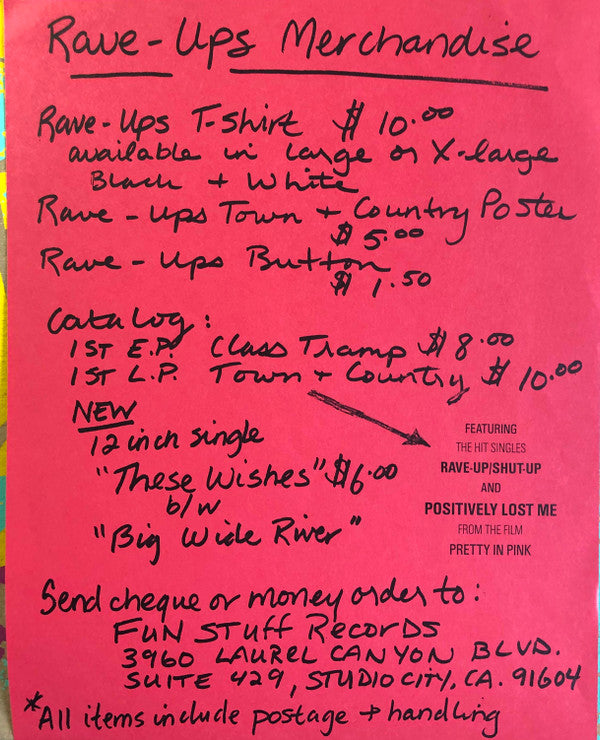 Rave-Ups Merchandise
Rave-Ups T-Shirt $10.00
available in large or X-large
Black + White
Rave-Ups Town + Country Poster
$5.00
Rave-Ups Button
$1.50
Catalog:
1ST E.P. Class Tramp $8.00
1ST L.P. Town + Country $10.00
NEW
12 inch single
"These Wishes" $6.00
b/w
"Big Wide River"
FEATURING
THE HIT SINGLES
RAVE-UP/SHUT-UP
AND
POSITIVELY LOST ME
FROM THE FILM
PRETTY IN PINK
Send cheque or money order to:
FUN STUFF RECORDS
3960 LAUREL CANYON BLVD.
SUITE 429, STUDIO CITY, CA. 91604
*All items include postage + handling